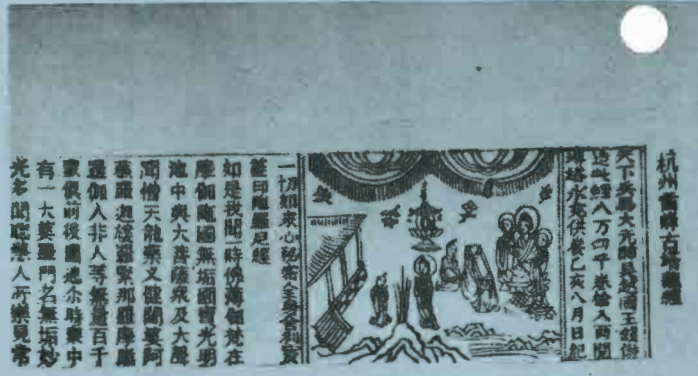 杭州雷峰古塔藏經
天下兵馬大元帥吳越國王錢俶
造此經八万四千卷捨入西關
塼塔永充供養乙亥八月日紀
一切如來心秘密全身舍利寶
篋印陀羅尼經
如是我聞一時佛薄伽梵在
摩伽陀國無垢園寶光明
池中與大菩薩衆及大聲
聞僧天龍藥叉健闥婆阿
蘇羅迦樓羅緊那羅摩睺
羅伽人非人等無量百千
衆俱前後圍遶尒時衆中
有一大婆羅門名無垢妙
光多聞聰慧人所樂見常